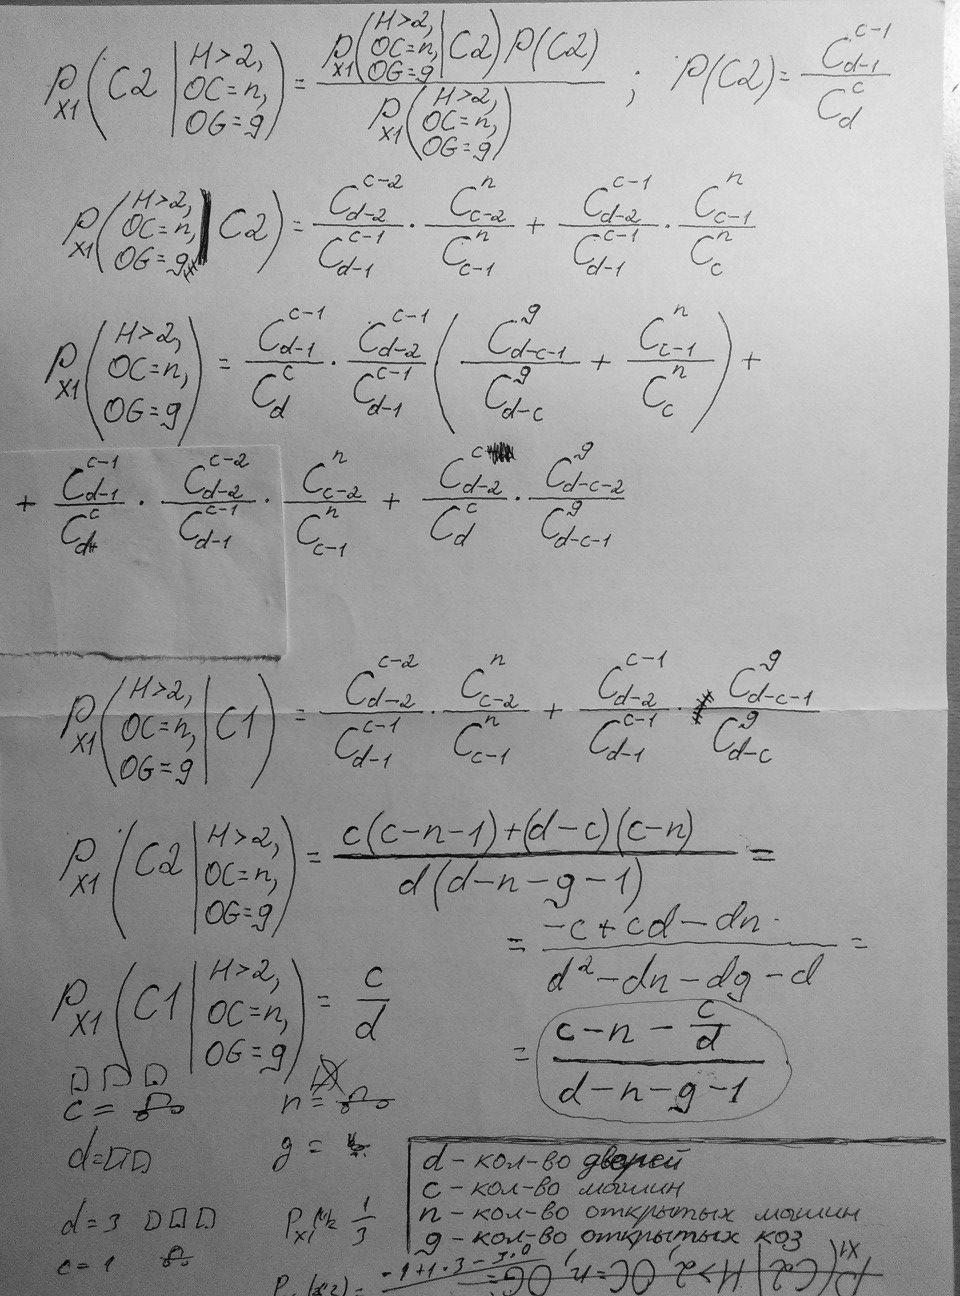 P_X1 (C2 | H>2, OC=n, OG=g) = P_X1(H>2, OC=n, OG=g | C2) P(C2) / P_X1(H>2, OC=n, OG=g) ; P(C2) = C_{d-1}^{c-1} / C_d^c
P_X1 (H>2, OC=n, OG=g | C2) = C_{d-2}^{c-2} / C_{d-1}^{c-1} · C_{c-2}^n / C_{c-1}^n + C_{d-2}^{c-1} / C_{d-1}^{c-1} · C_{c-1}^n / C_c^n
P_X1 (H>2, OC=n, OG=g) = C_{d-1}^{c-1} / C_d^c · C_{d-2}^{c-1} / C_{d-1}^{c-1} (C_{d-c-1}^g / C_{d-c}^g + C_{c-1}^n / C_c^n) +
+ C_{d-1}^{c-1} / C_d^c · C_{d-2}^{c-2} / C_{d-1}^{c-1} · C_{c-2}^n / C_{c-1}^n + C_{d-2}^c / C_d^c · C_{d-c-2}^g / C_{d-c-1}^g
P_X1 (H>2, OC=n, OG=g | C1) = C_{d-2}^{c-2} / C_{d-1}^{c-1} · C_{c-2}^n / C_{c-1}^n + C_{d-2}^{c-1} / C_{d-1}^{c-1} · C_{d-c-1}^g / C_{d-c}^g
P_X1 (C2 | H>2, OC=n, OG=g) = c(c-n-1)+(d-c)(c-n) / d(d-n-g-1) =
= -c+cd-dn / d²-dn-dg-d =
P_X1 (C1 | H>2, OC=n, OG=g) = c/d
= c-n-c/d / d-n-g-1
c = n =
d = g =
d - кол-во дверей
c - кол-во машин
n - кол-во открытых машин
g - кол-во открытых коз
d = 3 P_X1 1/3
c = 1
-1+1·3-3·0
P_X1(C2 | H>2, OC=n, OG=